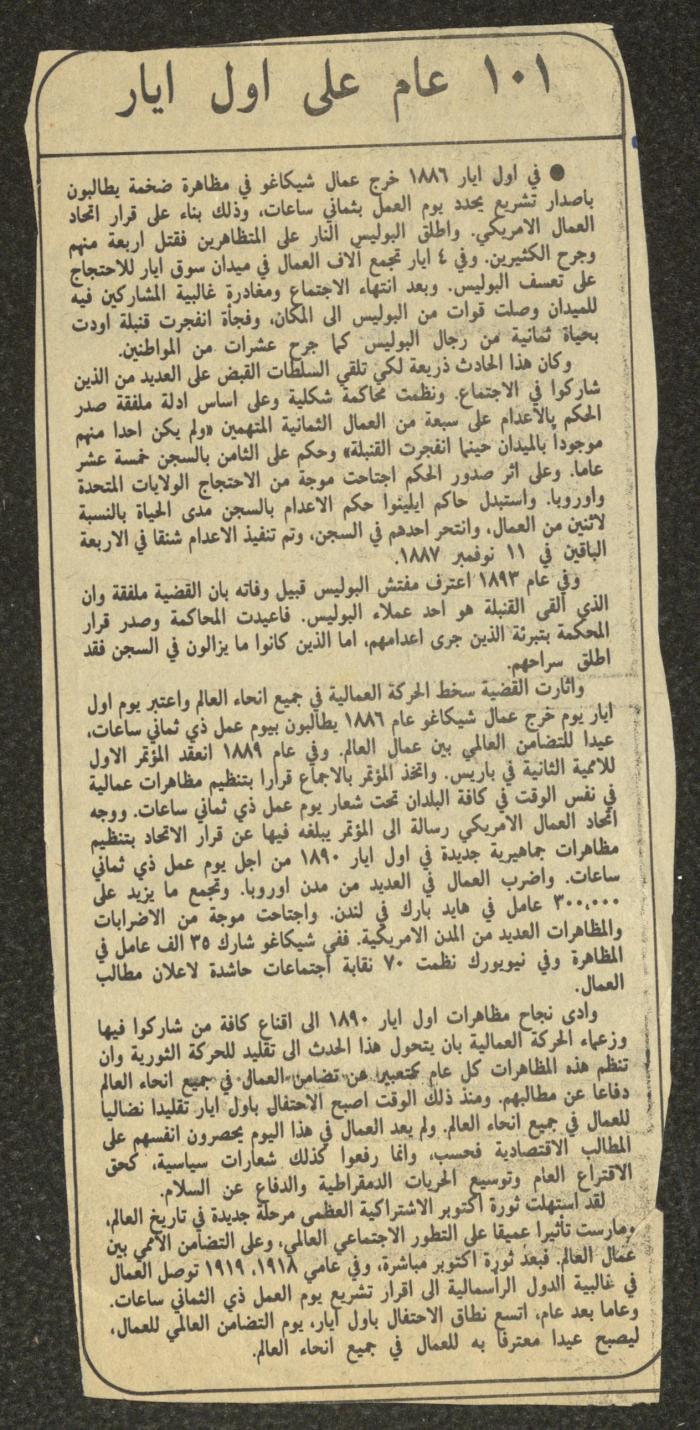 ١٠١ عام على اول ايار
● في اول ايار ١٨٨٦ خرج عمال شيكاغو في مظاهرة ضخمة يطالبون
باصدار تشريع يحدد يوم العمل بثماني ساعات، وذلك بناء على قرار اتحاد
العمال الامريكي. واطلق البوليس النار على المتظاهرين فقتل اربعة منهم
وجرح الكثيرين. وفي ٤ ايار تجمع آلاف العمال في ميدان سوق ايار للاحتجاج
على تعسف البوليس. وبعد انتهاء الاجتماع ومغادرة غالبية المشاركين فيه
للميدان وصلت قوات من البوليس الى المكان، وفجأة انفجرت قنبلة اودت
بحياة ثمانية من رجال البوليس كما جرح عشرات من المواطنين.
وكان هذا الحادث ذريعة لكي تلقي السلطات القبض على العديد من الذين
شاركوا في الاجتماع. ونظمت محاكمة شكلية وعلى اساس ادلة ملفقة صدر
الحكم بالاعدام على سبعة من العمال الثمانية المتهمين «ولم يكن احدا منهم
موجوداً بالميدان حينما انفجرت القنبلة» وحكم على الثامن بالسجن خمسة عشر
عاما. وعلى اثر صدور الحكم اجتاحت موجة من الاحتجاج الولايات المتحدة
واوروبا. واستبدل حاكم ايلينوا حكم الاعدام بالسجن مدى الحياة بالنسبة
لاثنين من العمال، وانتحر احدهم في السجن، وتم تنفيذ الاعدام شنقا في الاربعة
الباقين في ١١ نوفمبر ١٨٨٧.
وفي عام ١٨٩٣ اعترف مفتش البوليس قبيل وفاته بان القضية ملفقة وان
الذي القى القنبلة هو احد عملاء البوليس. فاعيدت المحاكمة وصدر قرار
المحكمة بتبرئة الذين جرى اعدامهم، اما الذين كانوا ما يزالون في السجن فقد
اطلق سراحهم.
واثارت القضية سخط الحركة العمالية في جميع انحاء العالم واعتبر يوم اول
ايار يوم خرج عمال شيكاغو عام ١٨٨٦ يطالبون بيوم عمل ذي ثماني ساعات،
عيدا للتضامن العالمي بين عمال العالم. وفي عام ١٨٨٩ انعقد المؤتمر الاول
للاممية الثانية في باريس. واتخذ المؤتمر بالاجماع قرارا بتنظيم مظاهرات عمالية
في نفس الوقت في كافة البلدان تحت شعار يوم عمل ذي ثماني ساعات. ووجه
اتحاد العمال الامريكي رسالة الى المؤتمر يبلغه فيها عن قرار الاتحاد بتنظيم
مظاهرات جماهيرية جديدة في اول ايار ١٨٩٠ من اجل يوم عمل ذي ثماني
ساعات. واضرب العمال في العديد من مدن اوروبا. وتجمع ما يزيد على
٣٠٠،٠٠٠ عامل في هايد بارك في لندن. واجتاحت موجة من الاضرابات
والمظاهرات العديد من المدن الامريكية. ففي شيكاغو شارك ٣٥ الف عامل في
المظاهرة وفي نيويورك نظمت ٧٠ نقابة اجتماعات حاشدة لاعلان مطالب
العمال.
وادى نجاح مظاهرات اول ايار ١٨٩٠ الى اقناع كافة من شاركوا فيها
وزعماء الحركة العمالية بان يتحول هذا الحدث الى تقليد للحركة الثورية وان
تنظم هذه المظاهرات كل عام كتعبير عن تضامن العمال في جميع انحاء العالم
دفاعا عن مطالبهم. ومنذ ذلك الوقت اصبح الاحتفال باول ايار تقليدا نضاليا
للعمال في جميع انحاء العالم. ولم يعد العمال في هذا اليوم يحصرون انفسهم على
المطالب الاقتصادية فحسب، وانما رفعوا كذلك شعارات سياسية، كحق
الاقتراع العام وتوسيع الحريات الدمقراطية والدفاع عن السلام.
لقد استهلت ثورة اكتوبر الاشتراكية العظمى مرحلة جديدة في تاريخ العالم،
ومارست تأثيرا عميقا على التطور الاجتماعي العالمي، وعلى التضامن الاممي بين
عمال العالم. فبعد ثورة اكتوبر مباشرة، وفي عامي ١٩١٨، ١٩١٩ توصل العمال
في غالبية الدول الرأسمالية الى اقرار تشريع يوم العمل ذي الثماني ساعات.
وعاما بعد عام، اتسع نطاق الاحتفال باول ايار، يوم التضامن العالمي للعمال،
ليصبح عيدا معترفا به للعمال في جميع انحاء العالم.